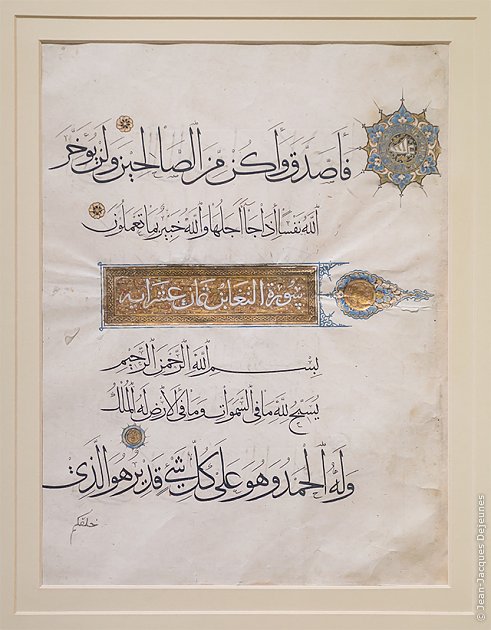 فأصدق وأكن من الصالحين ولن يؤخر
الله نفسا إذا جاء أجلها والله خبير بما تعملون
سورة التغابن ثمان عشر آية
بسم الله الرحمن الرحيم
يسبح لله ما في السموات وما في الأرض له الملك
وله الحمد وهو على كل شيء قدير هو الذي
خلقكم
© Jean-Jacques Dejeunes